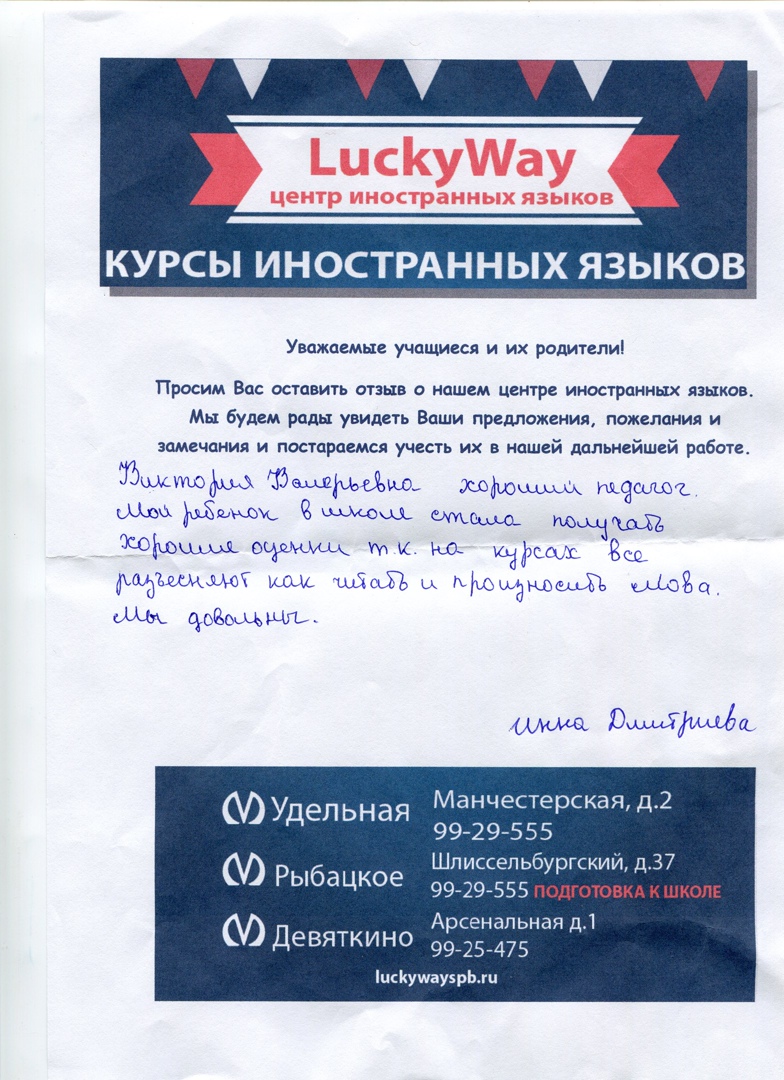 LuckyWay
центр иностранных языков
КУРСЫ ИНОСТРАННЫХ ЯЗЫКОВ
Уважаемые учащиеся и их родители!
Просим Вас оставить отзыв о нашем центре иностранных языков.
Мы будем рады увидеть Ваши предложения, пожелания и
замечания и постараемся учесть их в нашей дальнейшей работе.
Виктория Валерьевна хороший педагог.
Мой ребенок в школе стала получать
хорошие оценки т.к. на курсах все
разъесняют как читать и произносить слова.
Мы довольны.
Инна Дмитриева
Удельная
Манчестерская, д.2
99-29-555
Рыбацкое
Шлиссельбургский, д.37
99-29-555 ПОДГОТОВКА К ШКОЛЕ
Девяткино
Арсенальная д.1
99-25-475
luckywayspb.ru